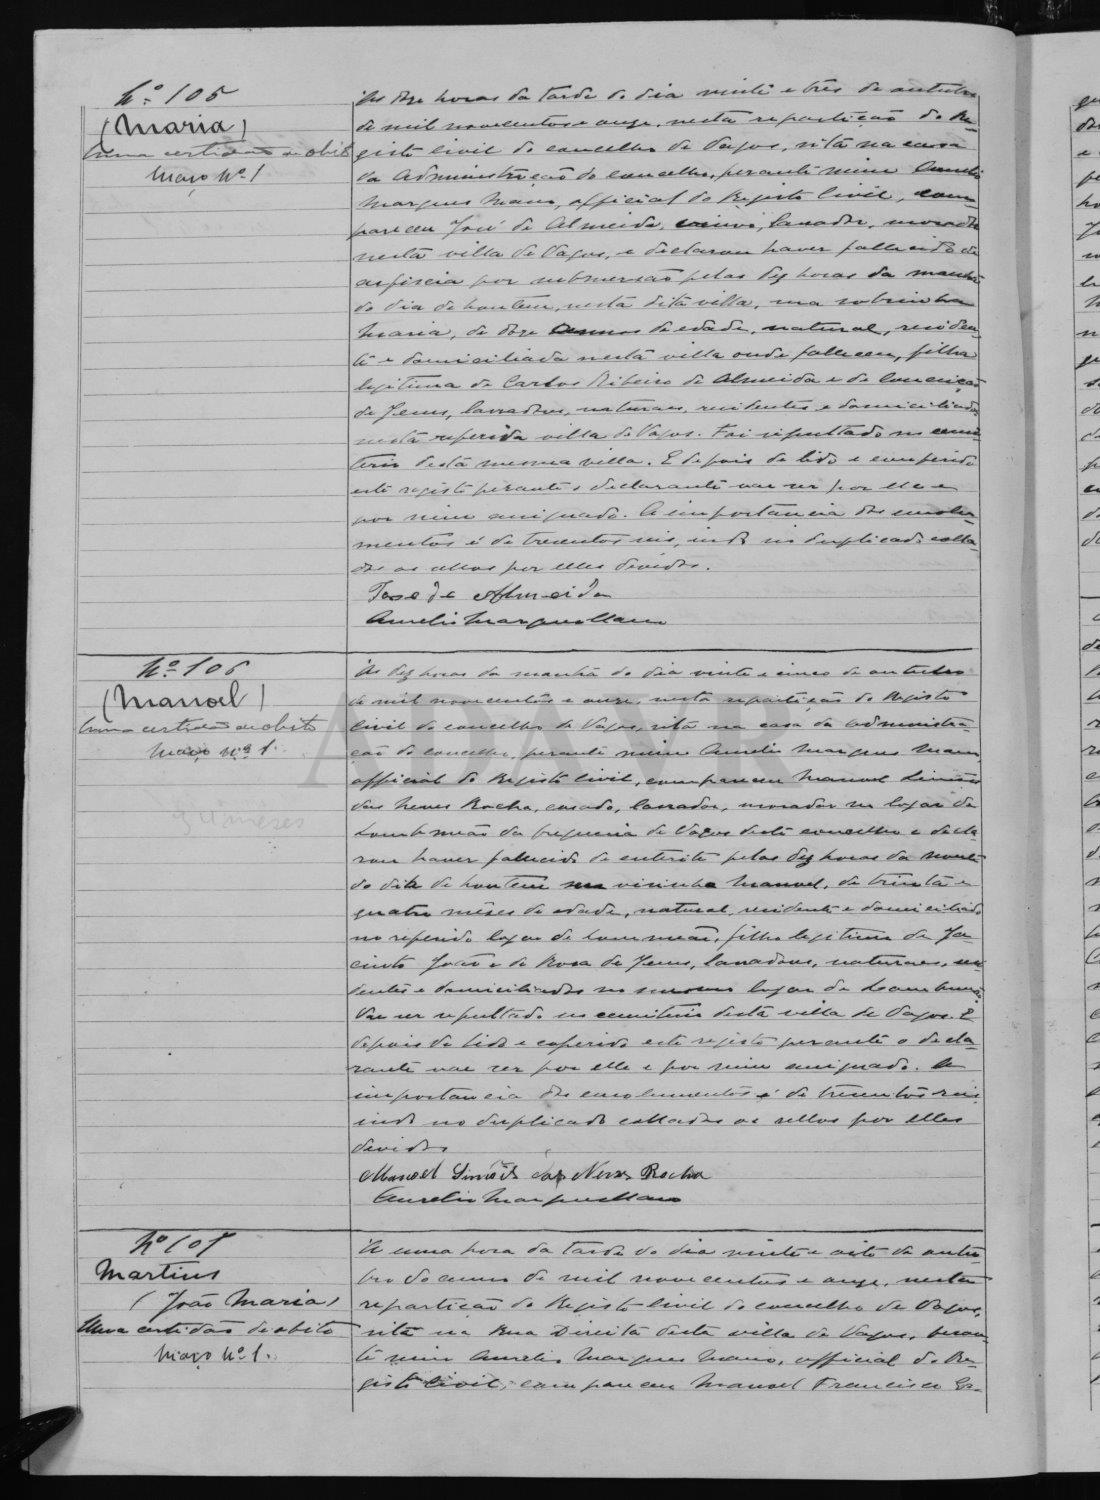 Nº 105
(Maria)
uma certidão de obito
Maço Nº 1
Ás doze horas da tarde do dia vinte e três de outubro
de mil novecentos e onze, nesta repartição do Re-
gisto civil do concelho de Vagos, sita na casa
da Administração do concelho, perante mim Aurelio
Marques Mano, official do Registo Civil, com-
pareceu José de Almeida, viuvo, lavrador, morador
nesta villa de Vagos, e declarou haver fallecido de
asfiscia por submersão pelas dez horas da manhã
do dia de hontem, nesta dita villa, sua sobrinha
Maria, de doze annos de edade, natural, residen-
te e domiciliada nesta villa onde falleceu, filha
legitima de Carlos Ribeiro de Almeida e de Conceição
de Jesus, lavradores, naturaes, residentes e domiciliados
nesta referida villa de Vagos. Foi sepultado no cemi-
terio desta mesma villa. E depois de lido e conferido
este registo perante o declarante vae ser por elle e
por mim assignado. A importancia dos emolu-
mentos é de trezentos reis, indo no duplicado colla-
dos os sellos por elles devidos.
Jose de Almeida
Aurelio Marques Mano
Nº 106
(Manoel)
Uma certidão de obito
Maço nº 1.
Ás dez horas da manhã do dia vinte e cinco de outubro
de mil novecentos e onze, nesta repartição do Registo
civil do concelho de Vagos, sita na casa da Administra-
ção do concelho, perante mim Aurelio Marques Mano,
official do Registo Civil, compareceu Manoel Simões
das Neves Rocha, casado, lavrador, morador no logar de
Lombomeão da freguesia de Vagos deste concelho e decla-
rou haver fallecido de enterite pelas dez horas da noute
do dia de hontem seu visinho Manoel, de trinta e
quatro mêses de edade, natural, residente e domiciliado
no referido logar de Lommeão, filho legitimo de Ja-
cinto João e de Rosa de Jesus, lavradores, naturaes, resi-
dentes e domiciliados no mesmo logar de Lombomeão.
Vae ser sepultado no cemiterio desta villa de Vagos. E
depois de lido e conferido este registo perante o decla-
rante vae ser por elle e por mim assignado. A
importancia dos emolumentos é de trezentos reis
indo no duplicado collados os sellos por elles
devidos
Manoel Simões das Neves Rocha
Aurelio Marques Mano
Nº 107
Martins
(João Maria)
Uma certidão de obito
Maço Nº 1.
A uma hora da tarde do dia vinte e oito de outu-
bro do anno de mil novecentos e onze, nesta
repartição do Registo Civil do concelho de Vagos,
sita na Rua Direita desta villa de Vagos, peran-
te mim Aurelio Marques Mano, official do Re-
gisto Civil, compareceu Manoel Francisco
ADAVR